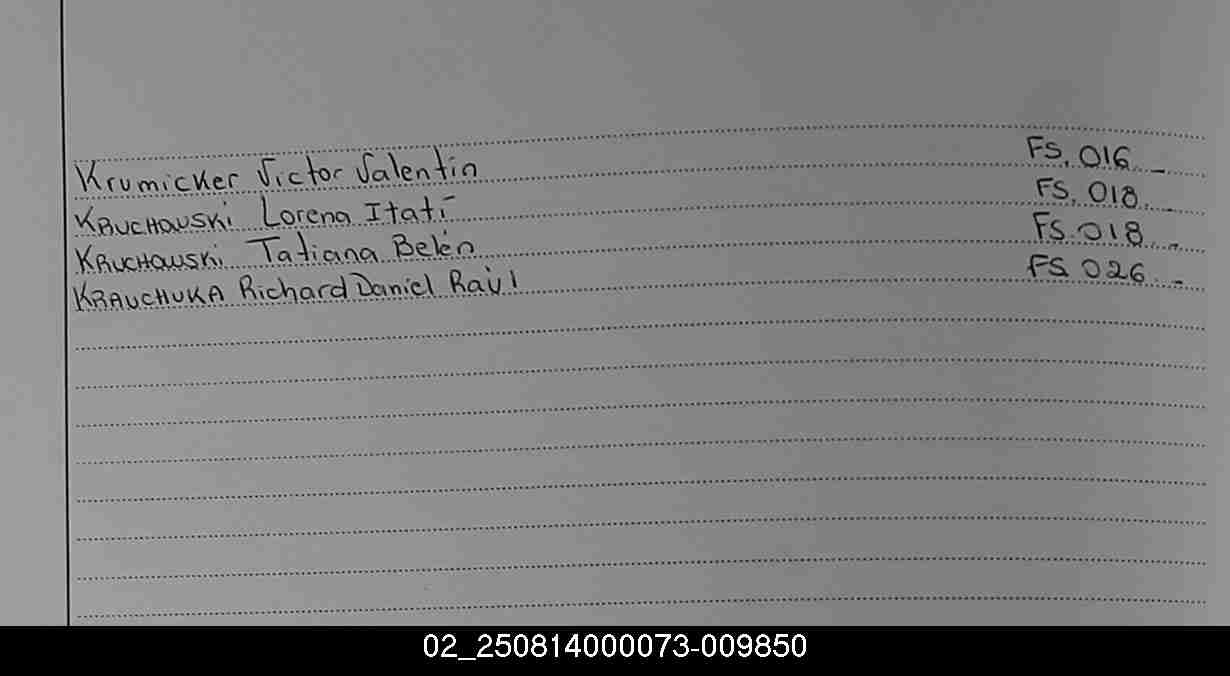 Krumicker Victor Valentin FS. 016 _
KRUCHOWSKi Lorena Itatí FS. 018 _
KRUCHOWSKi Tatiana Belén FS. 018 _
KRAUCHUKA Richard Daniel Raúl FS 026 _
02_250814000073-009850